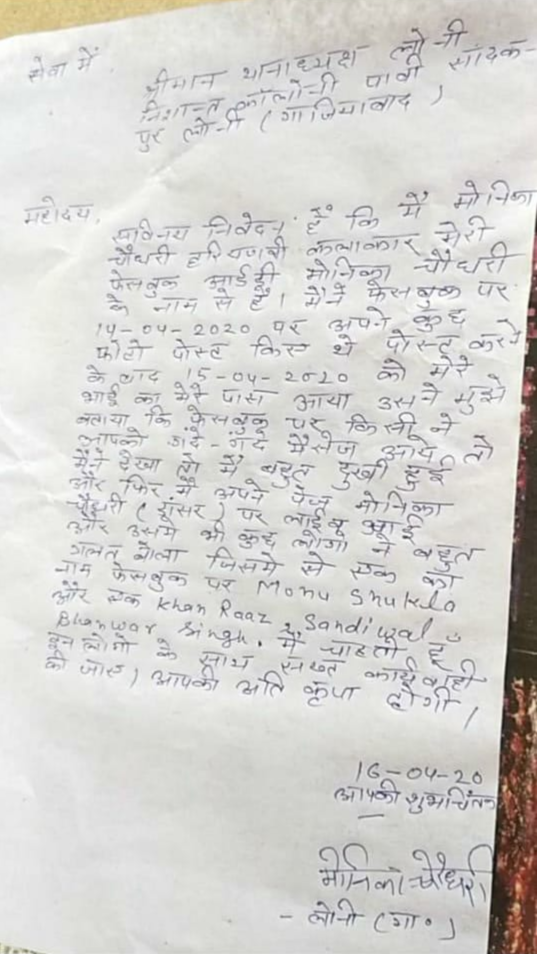 सेवा में
श्रीमान थानाध्यक्ष लोनी
निशान्त कॉलोनी पावी सादक-
पुर लोनी (गाजियाबाद)
महोदय,
सविनय निवेदन है कि मैं मोनिका
चौधरी हरियाणवी कलाकार मेरी
फेसबुक आईडी मोनिका चौधरी
के नाम से है। मैंने फेसबुक पर
14-04-2020 पर अपने कुछ
फोटो पोस्ट किए थे पोस्ट करने
के बाद 15-04-2020 को मेरे
भाई का मेरे पास आया उसने मुझे
बताया कि फेसबुक पर किसी ने
आपको गंदे-गंदे मैसेज आये तो
मैंने देखा तो मैं बहुत दुखी हुई
और फिर मैं अपने पेज मोनिका
चौधरी (डांसर) पर लाईव आई
और उसमे भी कुछ लोगो ने बहुत
गलत बोला जिसमे से एक का
नाम फेसबुक पर Monu Shukla
और एक Khan Raaz, Sandiwal
Bhanwar Singh. मैं चाहती हूँ
इन लोगो के साथ सख्त कार्यवाही
की जाए। आपकी अति कृपा होगी।
16-04-20
आपकी शुभचिंतक
मोनिका चौधरी
- लोनी (गा०)